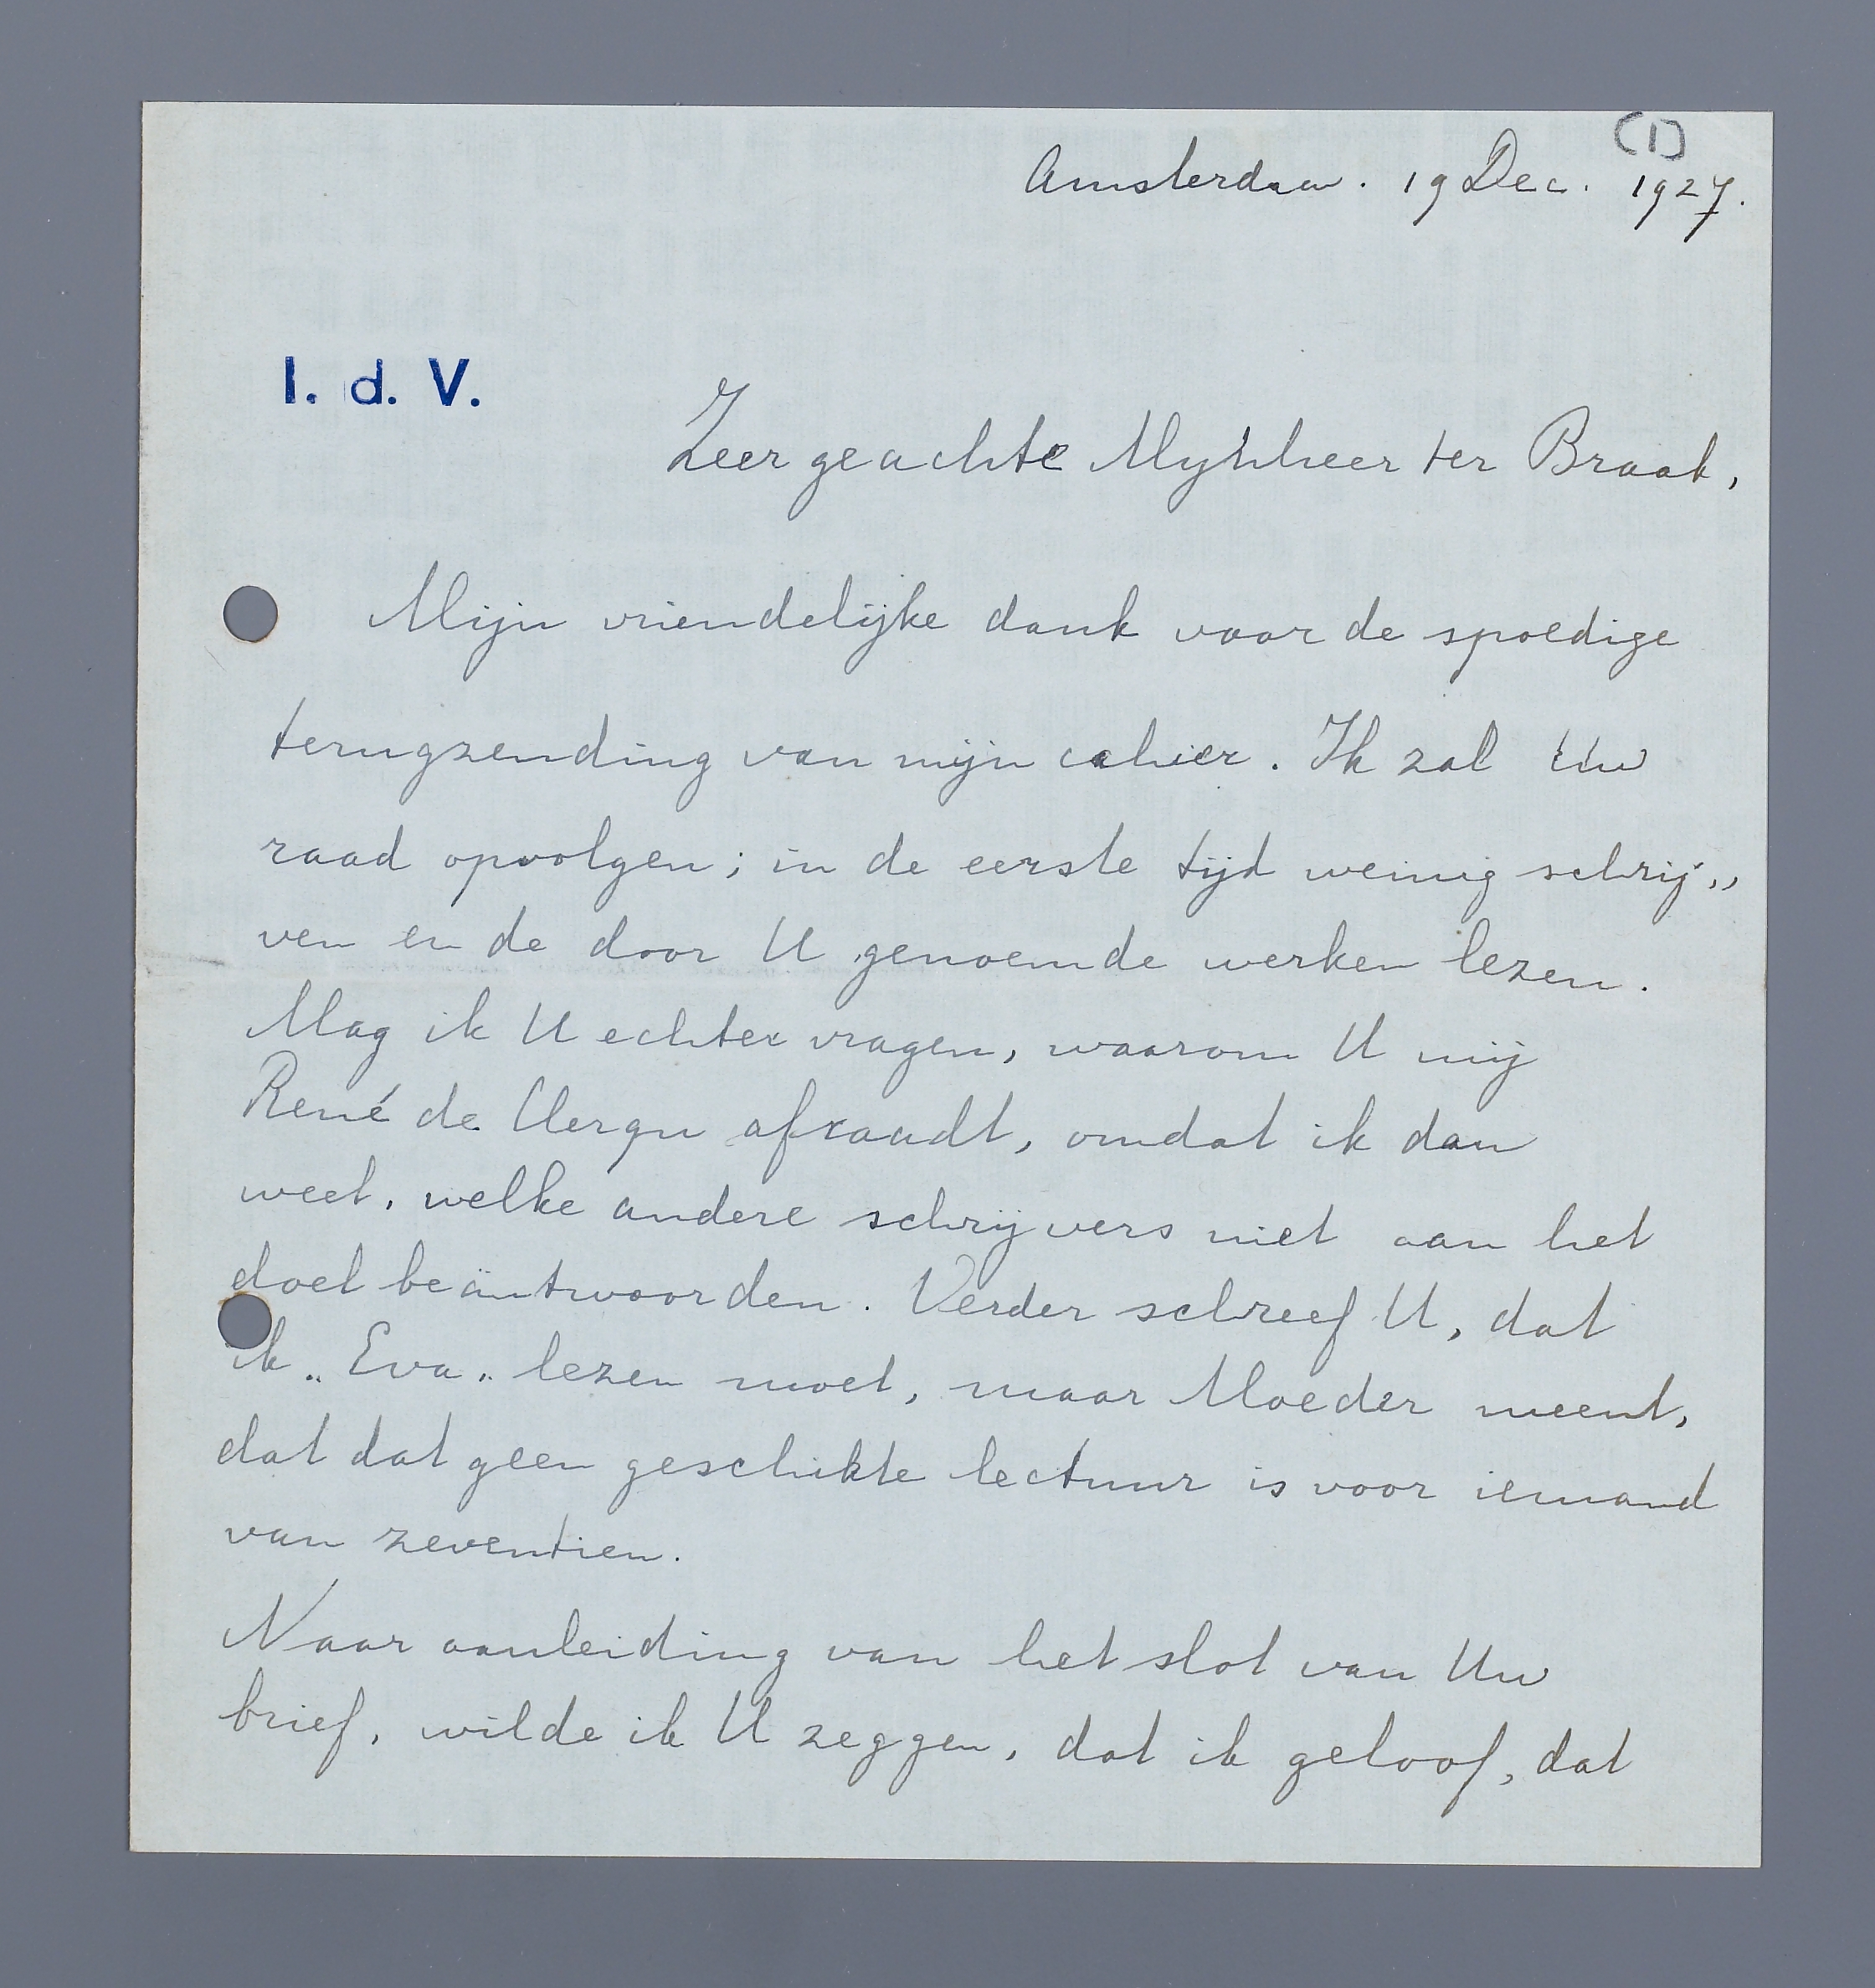 (1)
Amsterdam. 19 Dec. 1927.
I. d. V.
Zeer geachte Mynheer ter Braak,
Mijn vriendelijke dank voor de spoedige
terugzending van mijn cahier. Ik zal Uw
raad opvolgen; in de eerste tijd weinig schrij„
ven en de door U genoemde werken lezen.
Mag ik U echter vragen, waarom U mij
René de Clerqu afraadt, omdat ik dan
weet, welke andere schrijvers niet aan het
doel beäntwoorden. Verder schreef U, dat
ik „Eva„ lezen moet, maar Moeder meent,
dat dat geen geschikte lectuur is voor iemand
van zeventien.
Naar aanleiding van het slot van Uw
brief, wilde ik U zeggen, dat ik geloof, dat